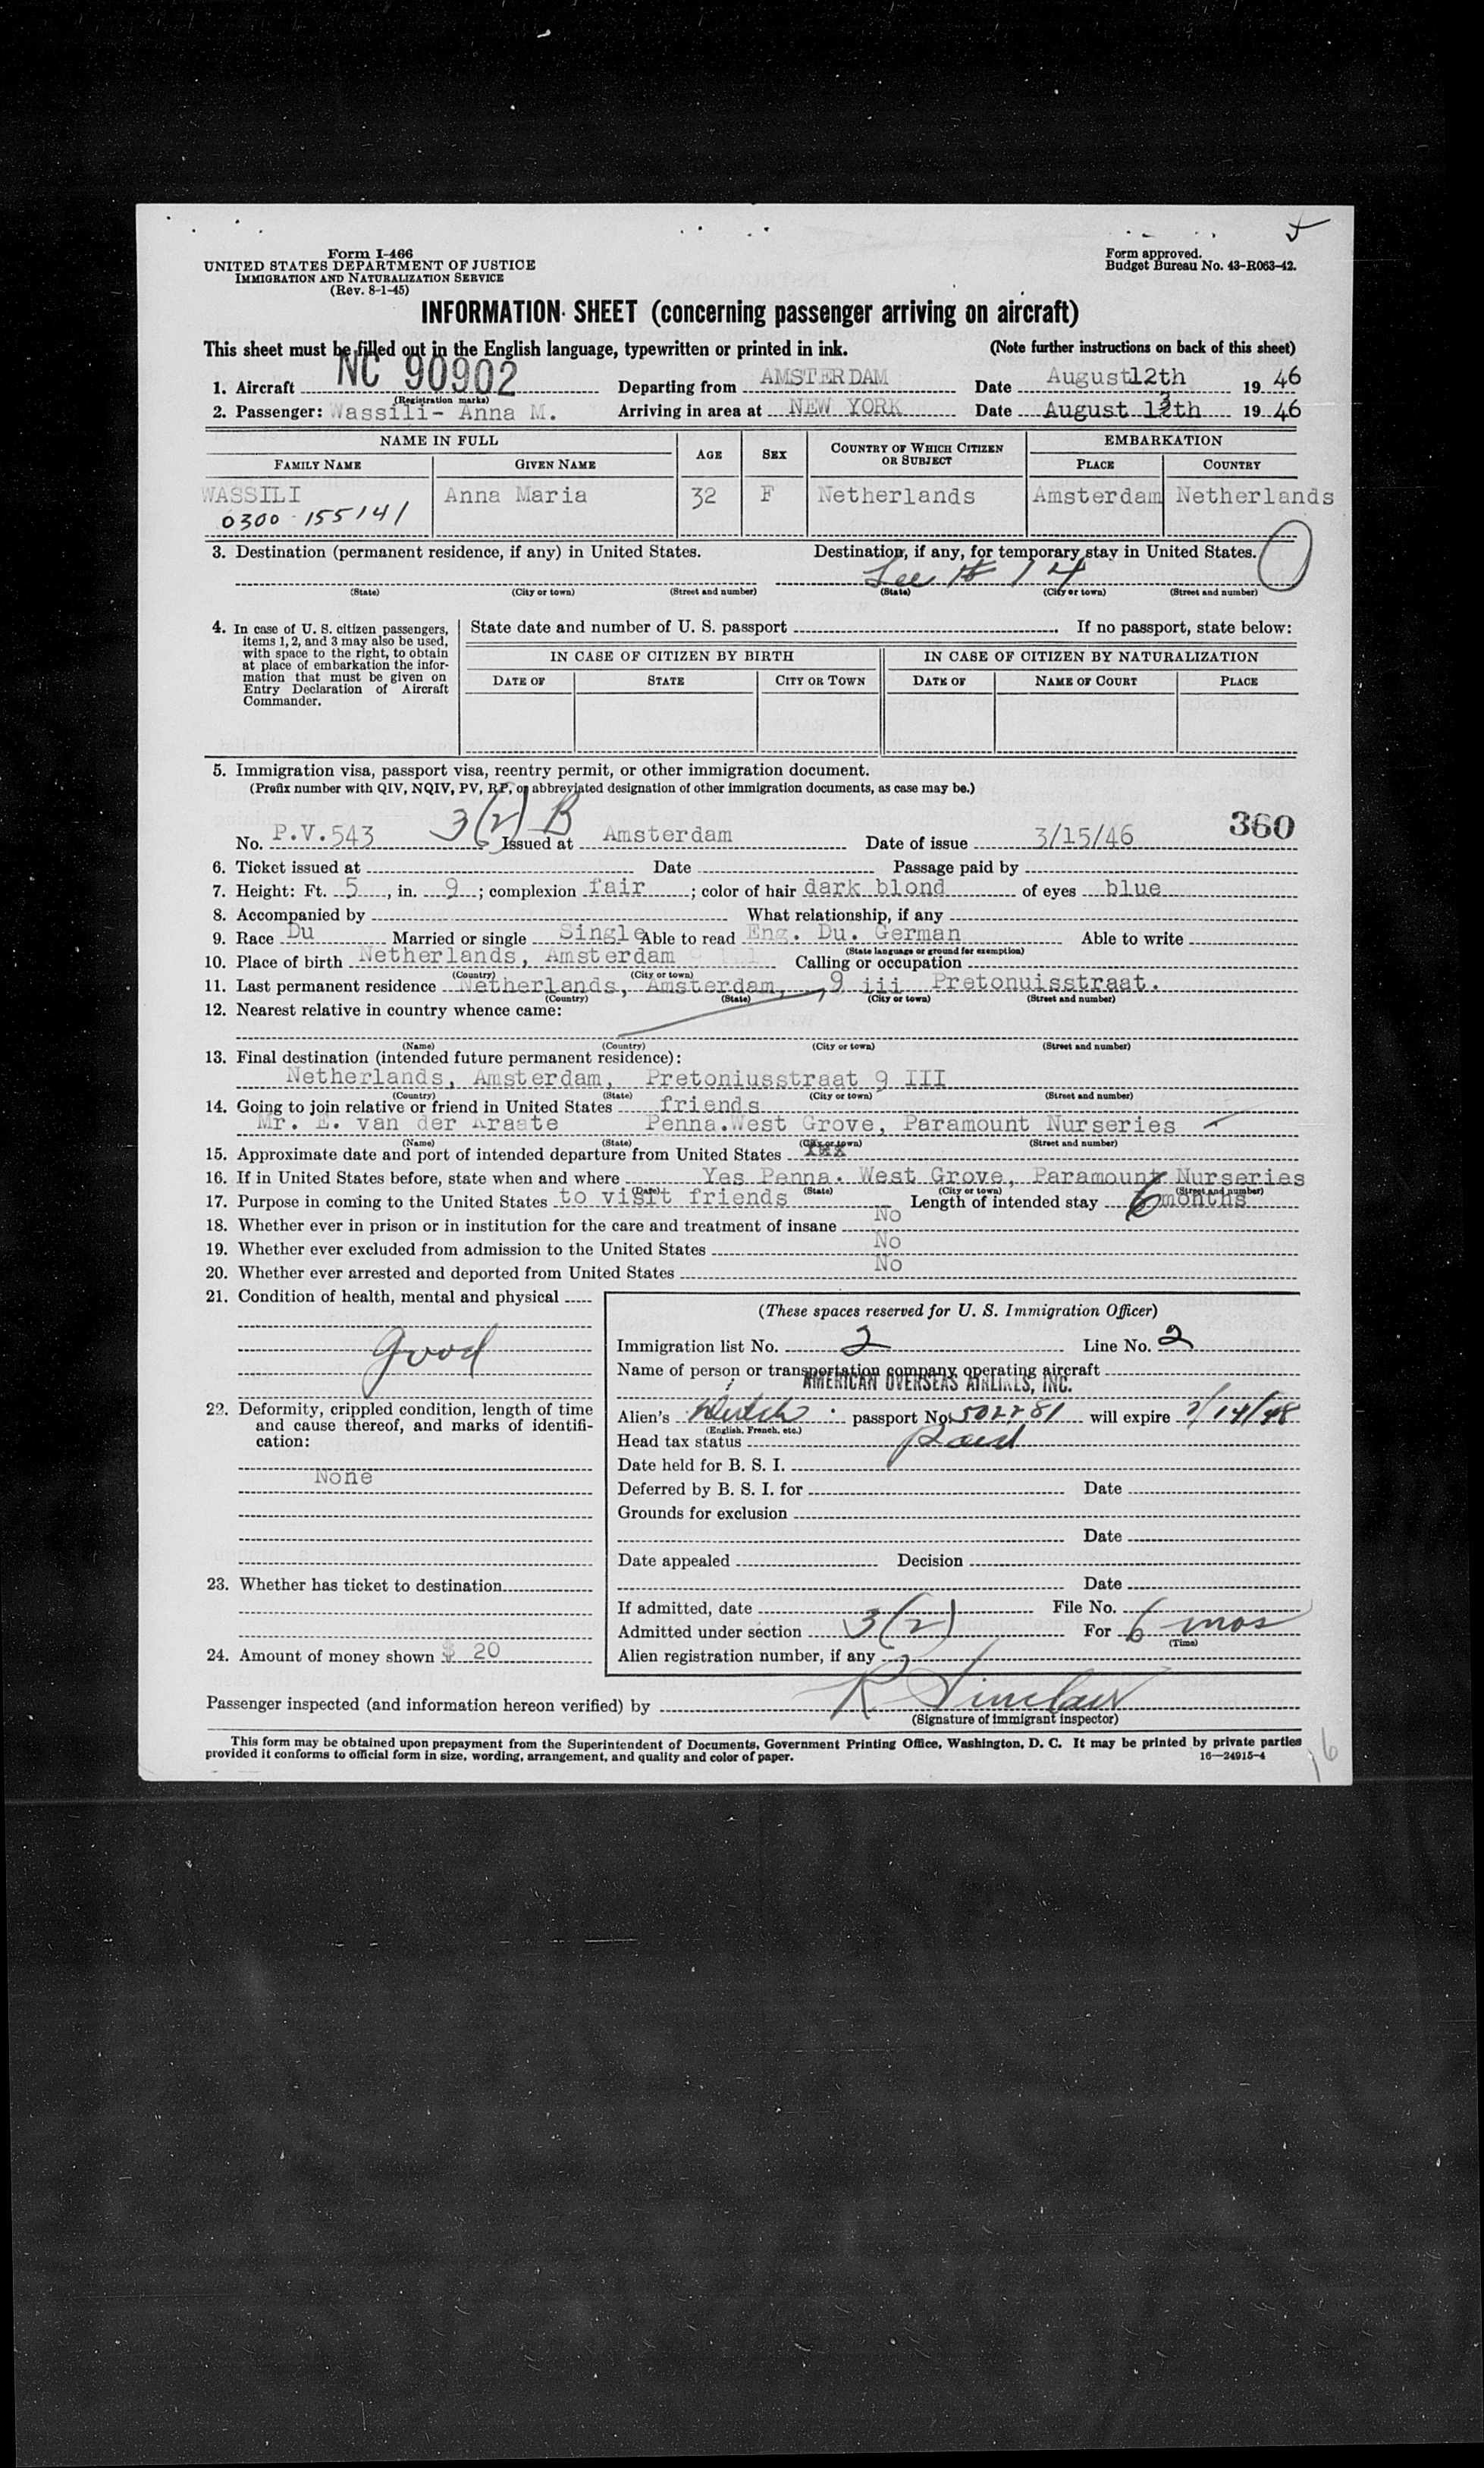 Form I-466
UNITED STATES DEPARTMENT OF JUSTICE
IMMIGRATION AND NATURALIZATION SERVICE
(Rev. 8-1-45)
Form approved.
Budget Bureau No. 43-R063-42.
INFORMATION SHEET (concerning passenger arriving on aircraft)
This sheet must be filled out in the English language, typewritten or printed in ink. (Note further instructions on back of this sheet)
1. Aircraft NC 90902 Departing from AMSTERDAM Date August 12th 19 46
(Registration marks)
2. Passenger: Wassili- Anna M. Arriving in area at NEW YORK Date August 13th 19 46
NAME IN FULL AGE SEX COUNTRY OF WHICH CITIZEN OR SUBJECT EMBARKATION
FAMILY NAME GIVEN NAME PLACE COUNTRY
WASSILI Anna Maria 32 F Netherlands Amsterdam Netherlands
0300-155141
3. Destination (permanent residence, if any) in United States. Destination, if any, for temporary stay in United States.
See # 14
(State) (City or town) (Street and number) (State) (City or town) (Street and number)
4. In case of U. S. citizen passengers, items 1, 2, and 3 may also be used, with space to the right, to obtain at place of embarkation the information that must be given on Entry Declaration of Aircraft Commander.
State date and number of U. S. passport If no passport, state below:
IN CASE OF CITIZEN BY BIRTH IN CASE OF CITIZEN BY NATURALIZATION
DATE OF STATE CITY OR TOWN DATE OF NAME OF COURT PLACE
5. Immigration visa, passport visa, reentry permit, or other immigration document.
(Prefix number with QIV, NQIV, PV, RP, or abbreviated designation of other immigration documents, as case may be.)
3(2) B 360
No. P.V.543 Issued at Amsterdam Date of issue 3/15/46
6. Ticket issued at Date Passage paid by
7. Height: Ft. 5, in. 9; complexion fair; color of hair dark blond of eyes blue
8. Accompanied by What relationship, if any
9. Race Du Married or single Single Able to read Eng. Du. German Able to write
(State language or ground for exemption)
10. Place of birth Netherlands, Amsterdam Calling or occupation
(Country) (City or town)
11. Last permanent residence Netherlands, Amsterdam, 9 iii Pretonuisstraat.
(Country) (State) (City or town) (Street and number)
12. Nearest relative in country whence came:
(Name) (Country) (City or town) (Street and number)
13. Final destination (intended future permanent residence):
Netherlands, Amsterdam, Pretoniusstraat 9 III
(Country) (State) (City or town) (Street and number)
14. Going to join relative or friend in United States friends
Mr. E. van der Kraate Penna.West Grove, Paramount Nurseries
(Name) (State) (City or town) (Street and number)
15. Approximate date and port of intended departure from United States
16. If in United States before, state when and where Yes Penna. West Grove, Paramount Nurseries
(Date) (State) (City or town) (Street and number)
17. Purpose in coming to the United States to visit friends Length of intended stay 6 months
18. Whether ever in prison or in institution for the care and treatment of insane No
19. Whether ever excluded from admission to the United States No
20. Whether ever arrested and deported from United States No
21. Condition of health, mental and physical
good
22. Deformity, crippled condition, length of time and cause thereof, and marks of identification:
None
23. Whether has ticket to destination
24. Amount of money shown $ 20
(These spaces reserved for U. S. Immigration Officer)
Immigration list No. 2 Line No. 2
Name of person or transportation company operating aircraft
AMERICAN OVERSEAS AIRLINES, INC.
Alien's Dutch passport No. 502281 will expire 2/14/48
(English, French, etc.)
Head tax status paid
Date held for B. S. I.
Deferred by B. S. I. for Date
Grounds for exclusion
Date
Date appealed Decision
Date
If admitted, date File No.
Admitted under section 3(2) For 6 mos
(Time)
Alien registration number, if any
Passenger inspected (and information hereon verified) by R Sinclair
(Signature of immigrant inspector)
This form may be obtained upon prepayment from the Superintendent of Documents, Government Printing Office, Washington, D. C. It may be printed by private parties
provided it conforms to official form in size, wording, arrangement, and quality and color of paper. 16—24915-4